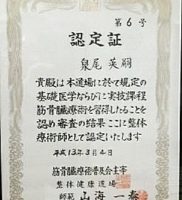 第6号
認定証
泉尾 英嗣
貴殿は本道場に於て規定の
基礎医学ならびに実技課程
筋骨臓療術を習得したることを
認め審査の結果ここに整体
療術師として認定いたします
平成13年3月4日
筋骨臓療術普及会主宰
整体健康道場
師範 山海 一泰